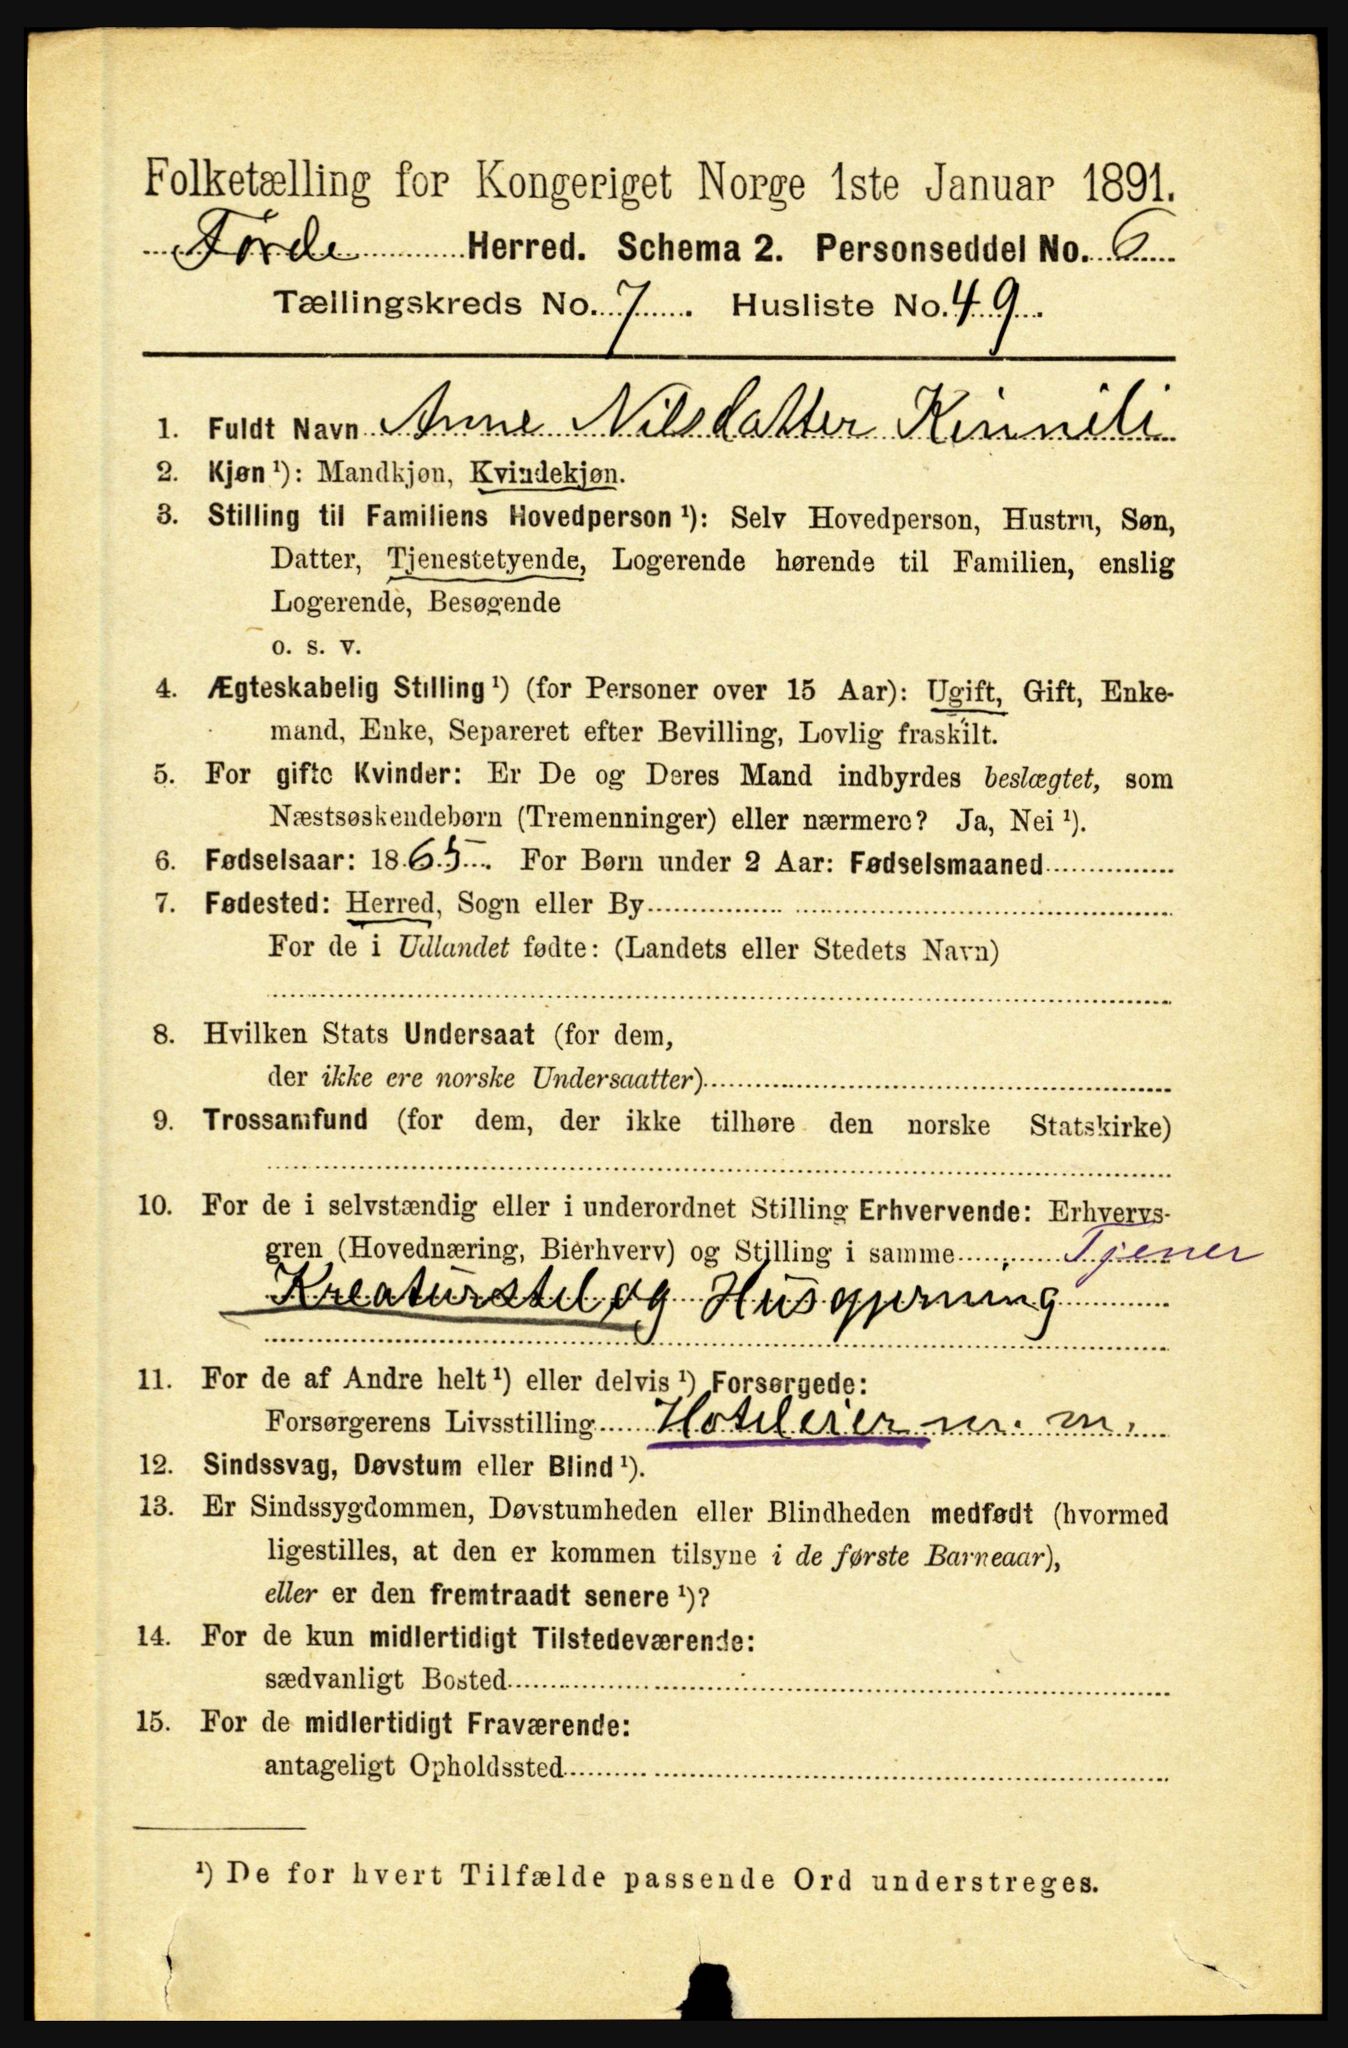 Folketælling for Kongeriget Norge 1ste Januar 1891.
Førde Herred. Schema 2. Personseddel No. 6
Tællingskreds No. 7. Husliste No. 49.
1. Fuldt Navn Anne Nilsdatter Kinnili
2. Kjøn ¹): Mandkjøn, Kvindekjøn.
3. Stilling til Familiens Hovedperson ¹): Selv Hovedperson, Hustru, Søn,
Datter, Tjenestetyende, Logerende hørende til Familien, enslig
Logerende, Besøgende
o. s. v.
4. Ægteskabelig Stilling ¹) (for Personer over 15 Aar): Ugift, Gift, Enke-
mand, Enke, Separeret efter Bevilling, Lovlig fraskilt.
5. For gifte Kvinder: Er De og Deres Mand indbyrdes beslægtet, som
Næstsøskendebørn (Tremenninger) eller nærmere? Ja, Nei ¹).
6. Fødselsaar: 1865. For Børn under 2 Aar: Fødselsmaaned
7. Fødested: Herred, Sogn eller By
For de i Udlandet fødte: (Landets eller Stedets Navn)
8. Hvilken Stats Undersaat (for dem,
der ikke ere norske Undersaatter)
9. Trossamfund (for dem, der ikke tilhøre den norske Statskirke)
10. For de i selvstændig eller i underordnet Stilling Erhvervende: Erhvervs-
gren (Hovednæring, Bierhverv) og Stilling i samme Tjener
Kreaturstel og Husgjerning
11. For de af Andre helt ¹) eller delvis ¹) Forsørgede:
Forsørgerens Livsstilling Hoteleier m. m.
12. Sindssvag, Døvstum eller Blind ¹).
13. Er Sindssygdommen, Døvstumheden eller Blindheden medfødt (hvormed
ligestilles, at den er kommen tilsyne i de første Barneaar),
eller er den fremtraadt senere ¹)?
14. For de kun midlertidigt Tilstedeværende:
sædvanligt Bosted
15. For de midlertidigt Fraværende:
antageligt Opholdssted
¹) De for hvert Tilfælde passende Ord understreges.